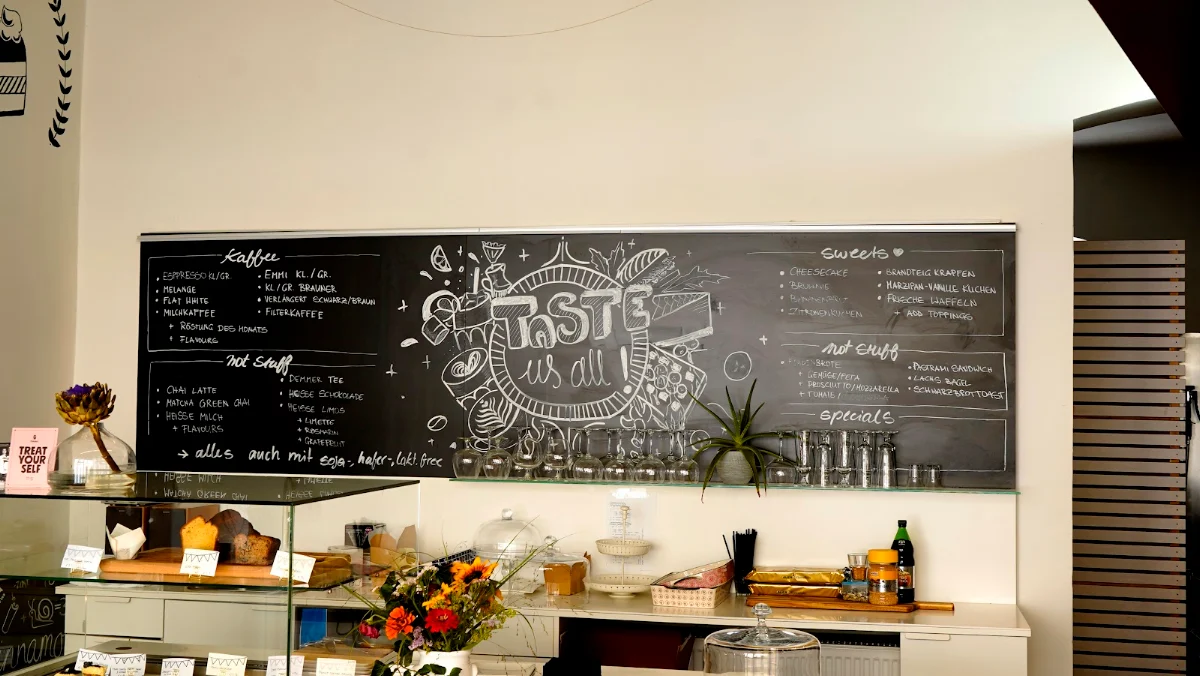 Kaffee
• ESPRESSO KL/GR.
• MELANGE
• FLAT WHITE
• MILCHKAFFEE
+ RÖSTUNG DES MONATS
+ FLAVOURS
• EMMI KL./GR.
• KL/GR BRAUNER
• VERLÄNGERT SCHWARZ/BRAUN
• FILTERKAFFEE
hot stuff
• CHAI LATTE
• MATCHA GREEN CHAI
• HEISSE MILCH
+ FLAVOURS
• DEMMER TEE
• HEISSE SCHOKOLADE
• HEISSE LIMOS
+ LIMETTE
+ ROSMARIN
+ GRAPEFRUIT
→ alles auch mit soja-, hafer-, lakt.free
TASTE
us all!
sweets
• CHEESECAKE
• BROWNIE
• ZITRONENKUCHEN
• BRANDTEIG KRAPFEN
• MARZIPAN-VANILLE KUCHEN
• FRISCHE WAFFELN
+ ADD TOPPINGS
hot stuff
+ GEMÜSE/FETA
+ PROSCIUTTO/MOZZARELLA
• PASTRAMI SANDWICH
• LACHS BAGEL
• SCHWARZBROTTOAST
specials
TREAT
YOUR
SELF